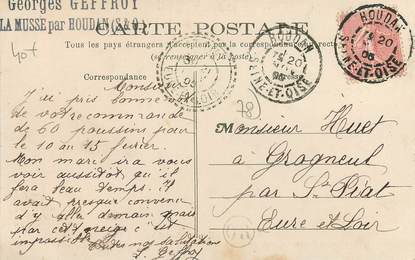 Georges GEFFROY
LA MUSSE par HOUDAN (S&O)
CARTE POSTALE
Tous les pays étrangers n'acceptent pas la correspondance
(se renseigner à la poste)
HOUDAN
20
05
SEINE-ET-OISE
HOUDAN
20
05
SEINE-ET-OISE
Correspondance
Monsieur
J'ai pris bonne
de votre commande
de 60 poussins pour
le 10 au 15 fevrier.
Mon mari ira vous
voir aussitôt qu'il
fera beau temps. Il
avait presque convenu
d'y aller demain mais
par cet neige c'est
impossible
salutations
78
Monsieur Huet
à Grogneul
par St Piat
Eure et Loir